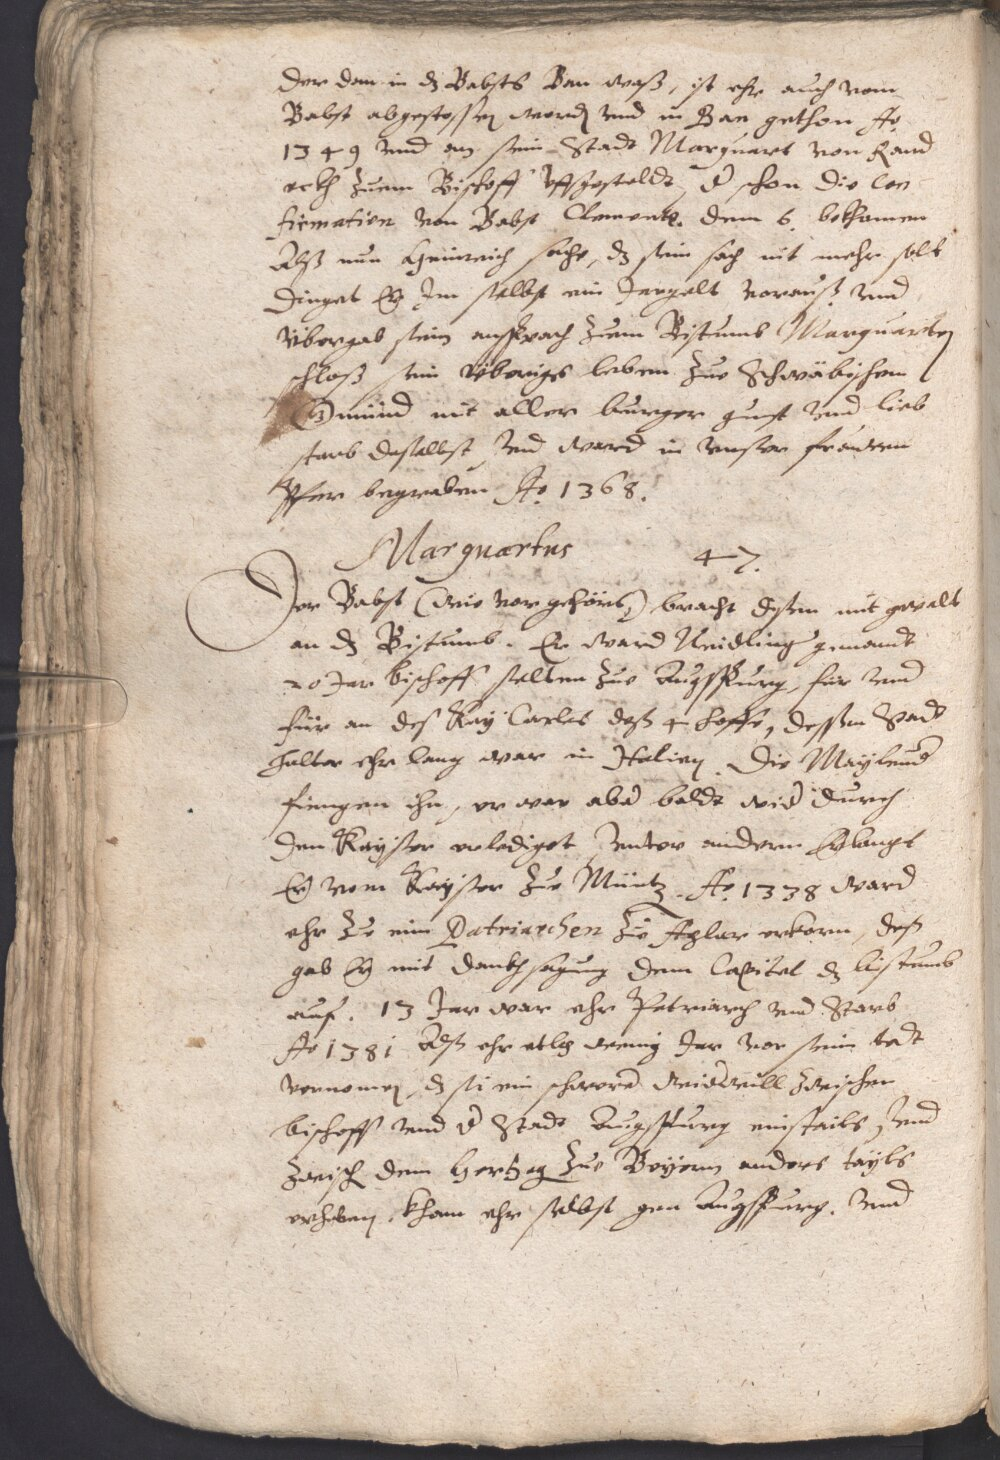 der dan in dz Babsts Ban waß, ist ehr auch vom
Babst abgestossen word vnd in Ban gethon Ao.
1349 vnd an sein Stadt Marquart von Rand
eckh zuem Bischoff vffgesteldt, d schon die Con
firmation von Babst Clement. dem 6. bekhomen
Alß nun Heinreich sahe, dz sein sach nit mehr solt
dinget Er Im selbst ein Jargelt vorauß vnd
Vbergab sein ansprach zuem Bistumb Marquarten
schloß sein vberigs leben zue Schwäbischem
Gmünd mit aller burger gunst vnd lieb
starb daselbst vnd ward in vnser frauwen
Pfar begraben Ao 1368.
Marquartus 47.
Der Babst (wie vor gehört) bracht disen mit gwalt
an dz Bistumb. Er ward Neidling genandt
20 Jar bischoff selten zue Augspurg, für vnd
für an des Kay Carles deß 4 hoffe, dessen Stadt
halter ehr lang war in Italien. Die Mayland
fiengen ihn, er war abd baldt wid durch
den Kayser erlediget vnter andern Erlangt
Er vom Kayser zue Müntz. Ao. 1338 ward
ehr zu eim Patriarchen zu Aglar erkorn, deß
gab Er mit danckhsagung dem Capitel dz bistumb
auf. 13 Jar war ehr Patriarch vnd Starb
Ao 1381 Alß ehr etlich wenig Jar vor seim todt
vernomen, dz sei ein schwerd widwill zwischen
bischoff vnd d Stadt Augspurg einstails, vnd
zwisch dem Hertzog zue Beyern anders tayls
erhaben, kham ehr selbst gen Augspurg. vnd